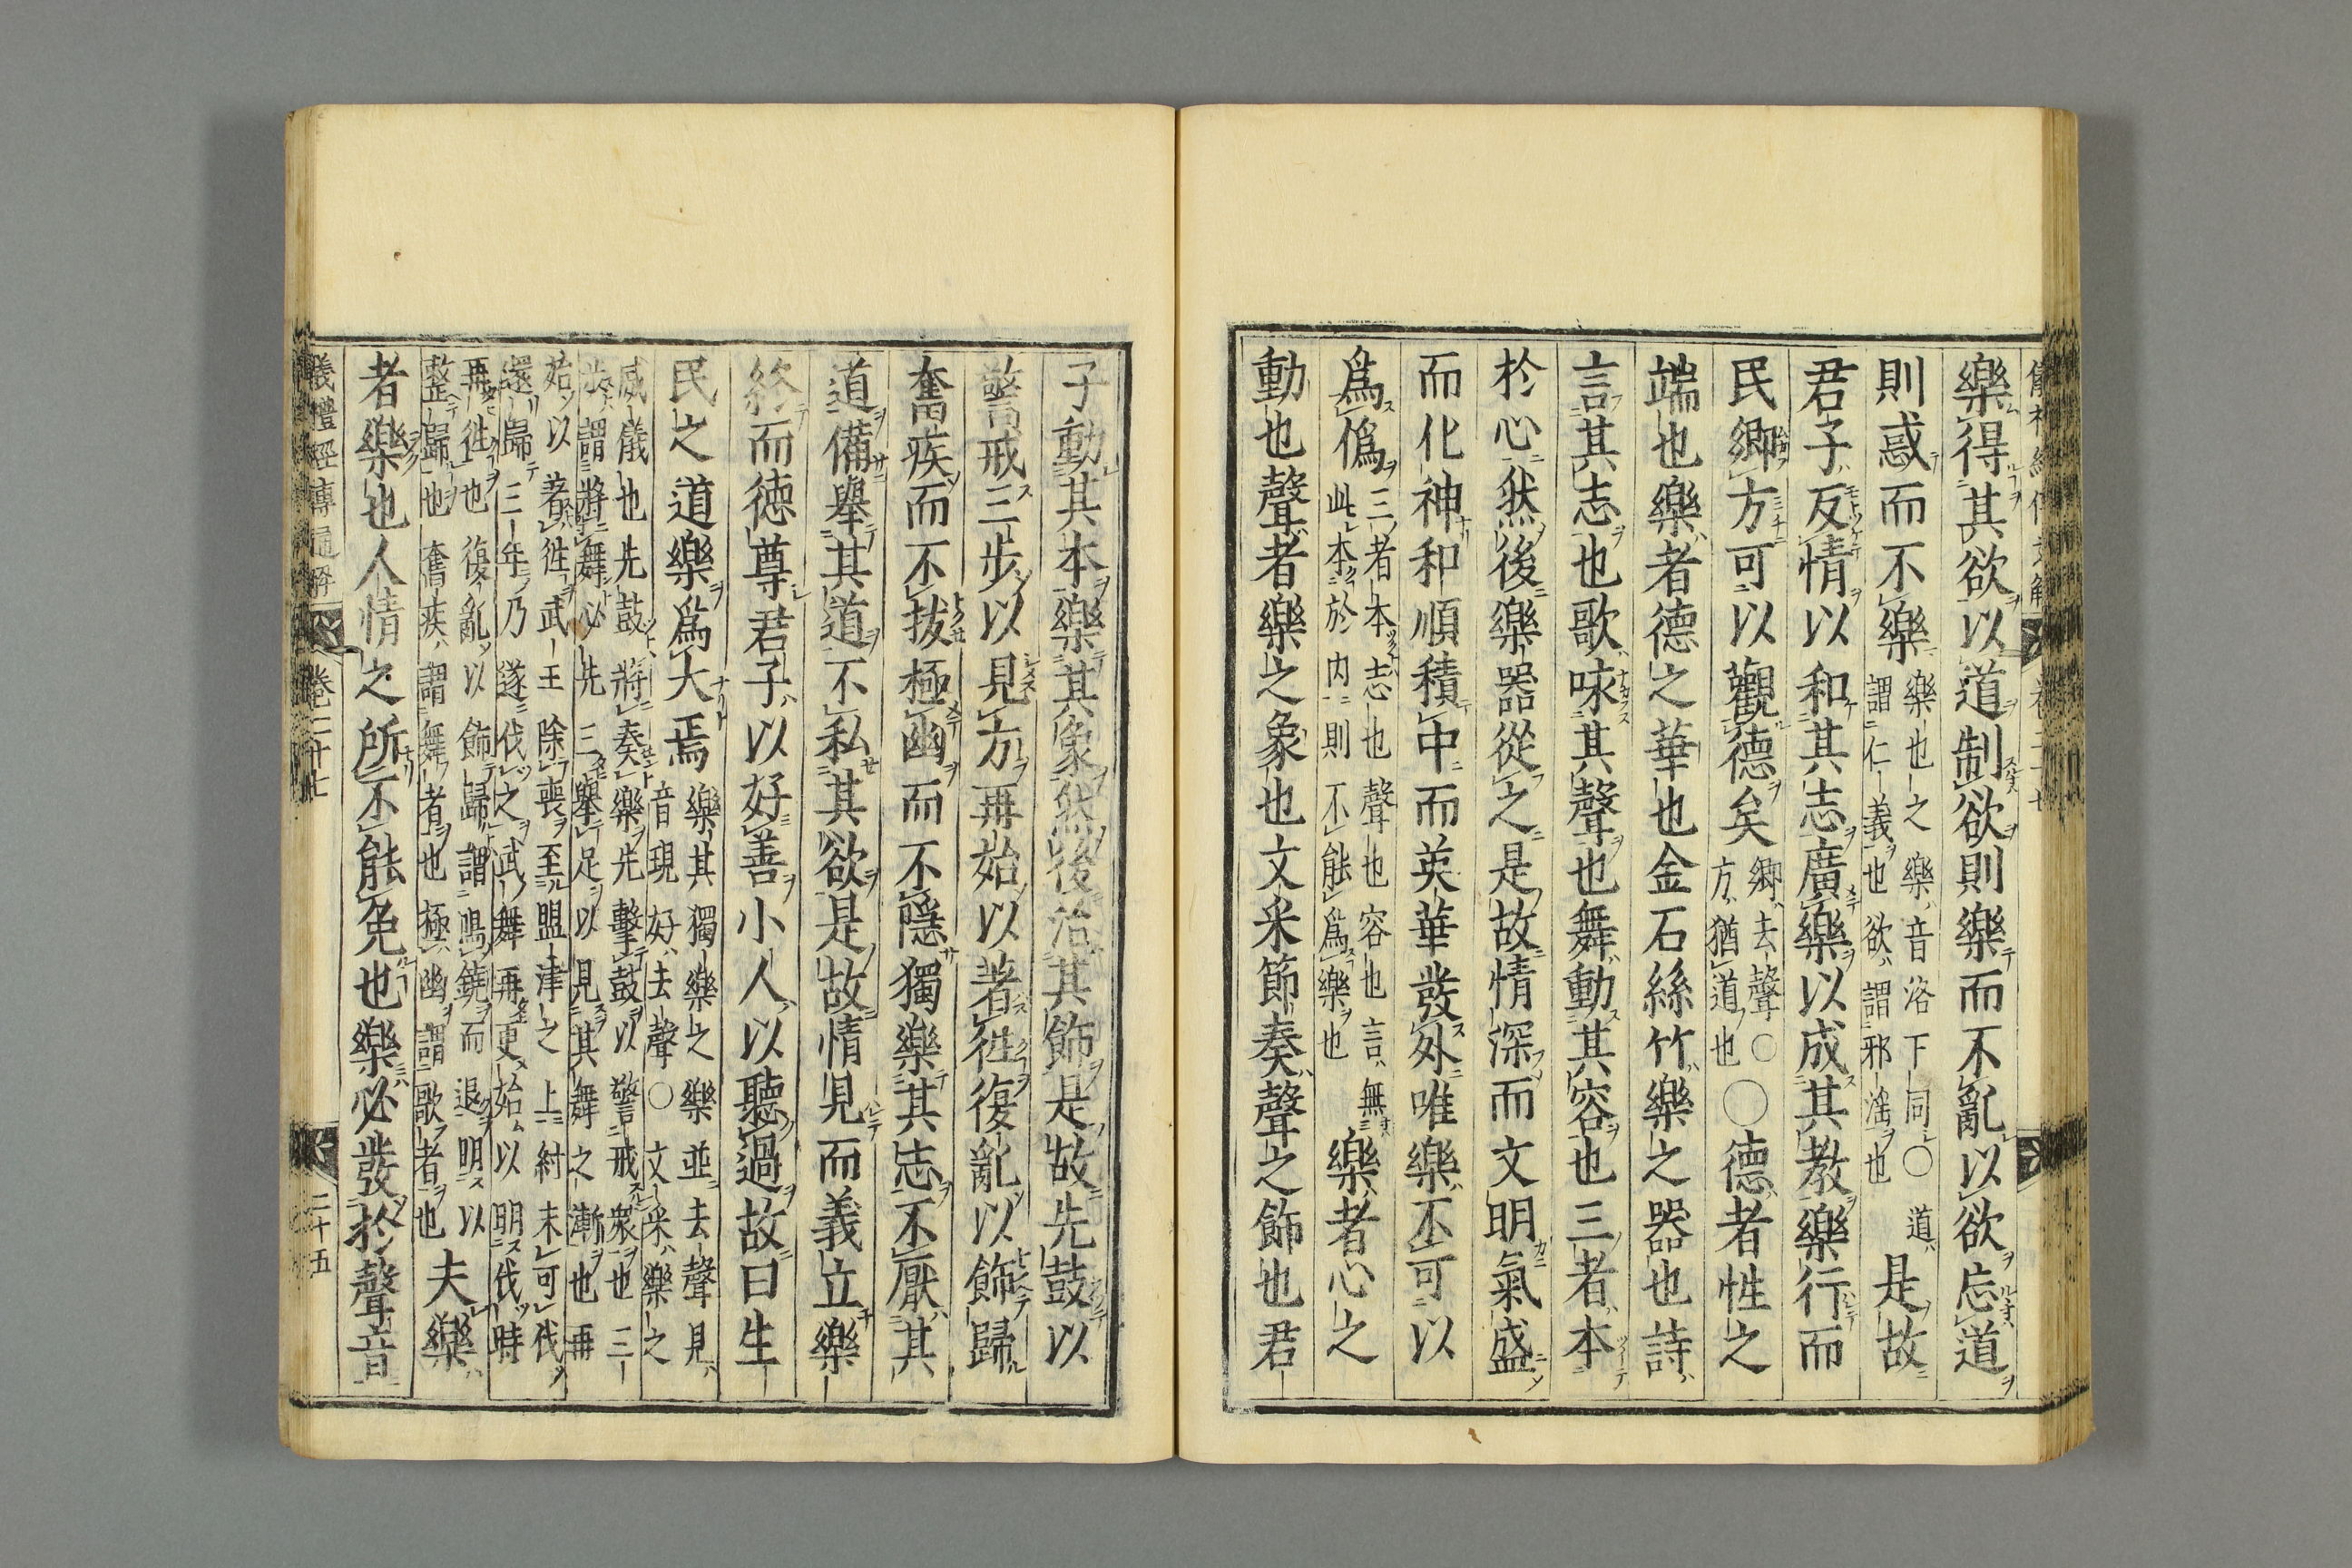 樂得其欲以道制欲則樂而不亂以欲忘道
則惑而不樂樂也之樂音洛下同○道謂仁義也欲謂邪滛也是故
君子反情以和其志廣樂以成其教樂行而
民鄉方可以觀德矣鄉去聲○方猶道也○德者性之
端也樂者德之華也金石絲竹樂之器也詩
言其志也歌咏其聲也舞動其容也三者本
於心然後樂器從之是故情深而文明氣盛
而化神和順積中而英華發外唯樂不可以
爲僞三者本志也聲也容也言無此本於内則不能爲樂也樂者心之
動也聲者樂之象也文采節奏聲之飾也君
子動其本樂其象然後治其飾是故先鼓以
警戒三步以見方再始以著徃復亂以飾歸
奮疾而不拔極幽而不隱獨樂其志不厭其
道備舉其道不私其欲是故情見而義立樂
終而德尊君子以好善小人以聽過故曰生
民之道樂爲大焉樂其獨樂之樂並去聲見音現好去聲○文采樂之
威儀也先鼓將奏樂先擊鼓以警戒衆也三
步謂將舞必先三舉足以見其舞之漸也再
始以著徃武王除喪至盟津之上紂未可伐
還歸三年乃遂伐之武舞再更始以明伐時
再徃也復亂以飾歸謂鳴鐃而退明以
整歸也奮疾謂舞者也極幽謂歌者也夫樂
者樂也人情之所不能免也樂必發於聲音
儀禮經傳通解 卷二十七 二十五